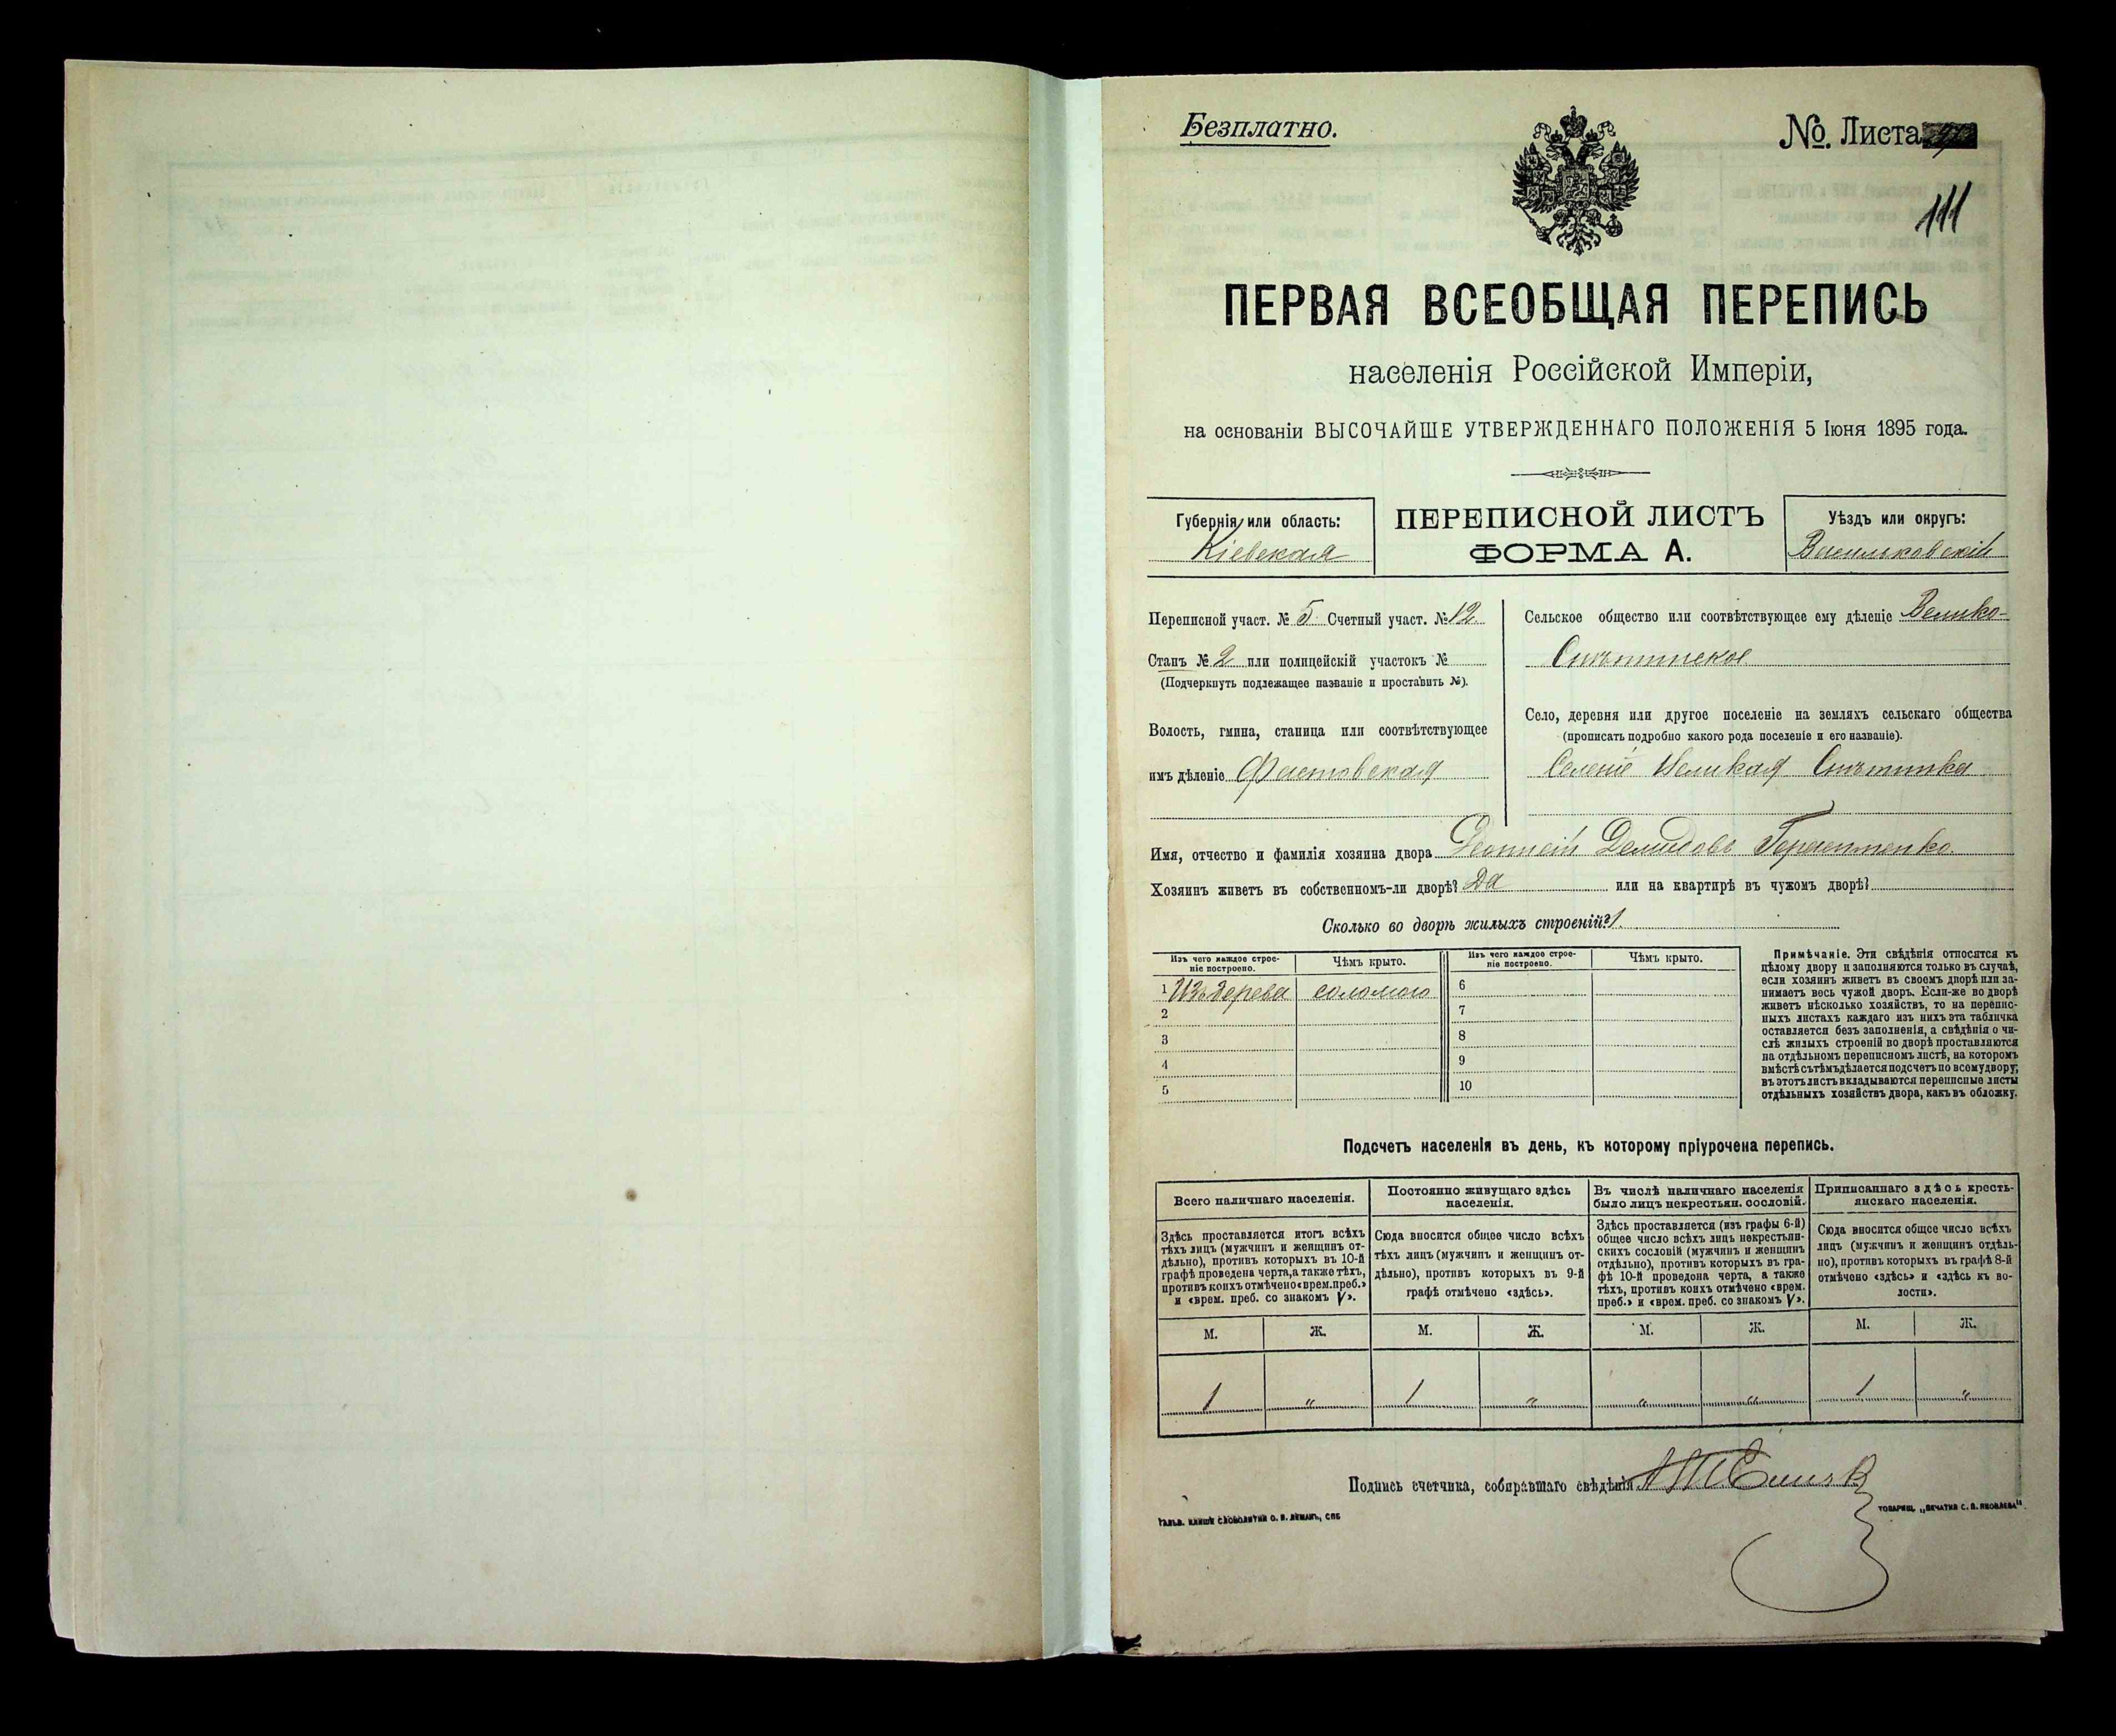 Безплатно.
№. Листа
111
ПЕРВАЯ ВСЕОБЩАЯ ПЕРЕПИСЬ
населенія Россійской Имперіи,
на основаніи ВЫСОЧАЙШЕ УТВЕРЖДЕННАГО ПОЛОЖЕНІЯ 5 Іюня 1895 года.
Губернія или область:
Кіевская
ПЕРЕПИСНОЙ ЛИСТЪ
ФОРМА А.
Уѣздъ или округъ:
Васильковскій
Переписной участ. № 5 Счетный участ. № 12
Станъ № 2 или полицейскій участокъ №
(Подчеркнуть подлежащее названіе и проставить №).
Волость, гмина, станица или соотвѣтствующее
имъ дѣленіе Фастовская
Сельское общество или соотвѣтствующее ему дѣленіе Велико-
Снѣтинское
Село, деревня или другое поселеніе на земляхъ сельскаго общества
(прописать подробно какого рода поселеніе и его названіе).
Селеніе Великая Снѣтинка
Имя, отчество и фамилія хозяина двора Демидовъ Герасименко
Хозяинъ живетъ въ собственномъ-ли дворѣ? Да или на квартирѣ въ чужомъ дворѣ?
Сколько во дворѣ жилыхъ строеній? 1
Изъ чего каждое строе-
ніе построено.
Чѣмъ крыто.
Изъ чего каждое строе-
ніе построено.
Чѣмъ крыто.
1 Изъ дерева соломою
2
3
4
5
6
7
8
9
10
Примѣчаніе. Эти свѣдѣнія относятся къ
цѣлому двору и заполняются только въ случаѣ,
если хозяинъ живетъ въ своемъ дворѣ или за-
нимаетъ весь чужой дворъ. Если-же во дворѣ
живетъ нѣсколько хозяйствъ, то на перепис-
ныхъ листахъ каждаго изъ нихъ эта табличка
оставляется безъ заполненія, а свѣдѣнія о чи-
слѣ жилыхъ строеній во дворѣ проставляются
на отдѣльномъ переписномъ листѣ, на которомъ
вмѣстѣ съ тѣмъ дѣлается подсчетъ по всему двору;
въ этотъ листъ вкладываются переписные листы
отдѣльныхъ хозяйствъ двора, какъ въ обложку.
Подсчетъ населенія въ день, къ которому пріурочена перепись.
Всего наличнаго населенія.
Здѣсь проставляется итогъ всѣхъ
тѣхъ лицъ (мужчинъ и женщинъ от-
дѣльно), противъ которыхъ въ 10-й
графѣ проведена черта, а также тѣхъ,
противъ коихъ отмѣчено «врем. преб.»
и «врем. преб. со знакомъ V».
Постоянно живущаго здѣсь
населенія.
Сюда вносится общее число всѣхъ
тѣхъ лицъ (мужчинъ и женщинъ от-
дѣльно), противъ которыхъ въ 9-й
графѣ отмѣчено «здѣсь».
Въ числѣ наличнаго населенія
было лицъ некрестьян. сословій.
Здѣсь проставляется (изъ графы 6-й)
общее число всѣхъ лицъ некрестьян-
скихъ сословій (мужчинъ и женщинъ
отдѣльно), противъ которыхъ въ гра-
фѣ 10-й проведена черта, а также
тѣхъ, противъ коихъ отмѣчено «врем.
преб.» и «врем. преб. со знакомъ V».
Приписаннаго здѣсь кресть-
янскаго населенія.
Сюда вносится общее число всѣхъ
лицъ (мужчинъ и женщинъ отдѣль-
но), противъ которыхъ въ графѣ 8-й
отмѣчено «здѣсь» и «здѣсь къ во-
лости».
М. Ж. М. Ж. М. Ж. М. Ж.
1 " 1 " " " 1 "
Подпись счетчика, собиравшаго свѣдѣнія
ГАЛЬВ. КЛИШЕ СЛОВОЛИТНИ О. И. ЛЕМАНЪ, СПБ
ТОВАРИЩ. „ПЕЧАТНЯ С. П. ЯКОВЛЕВА“.